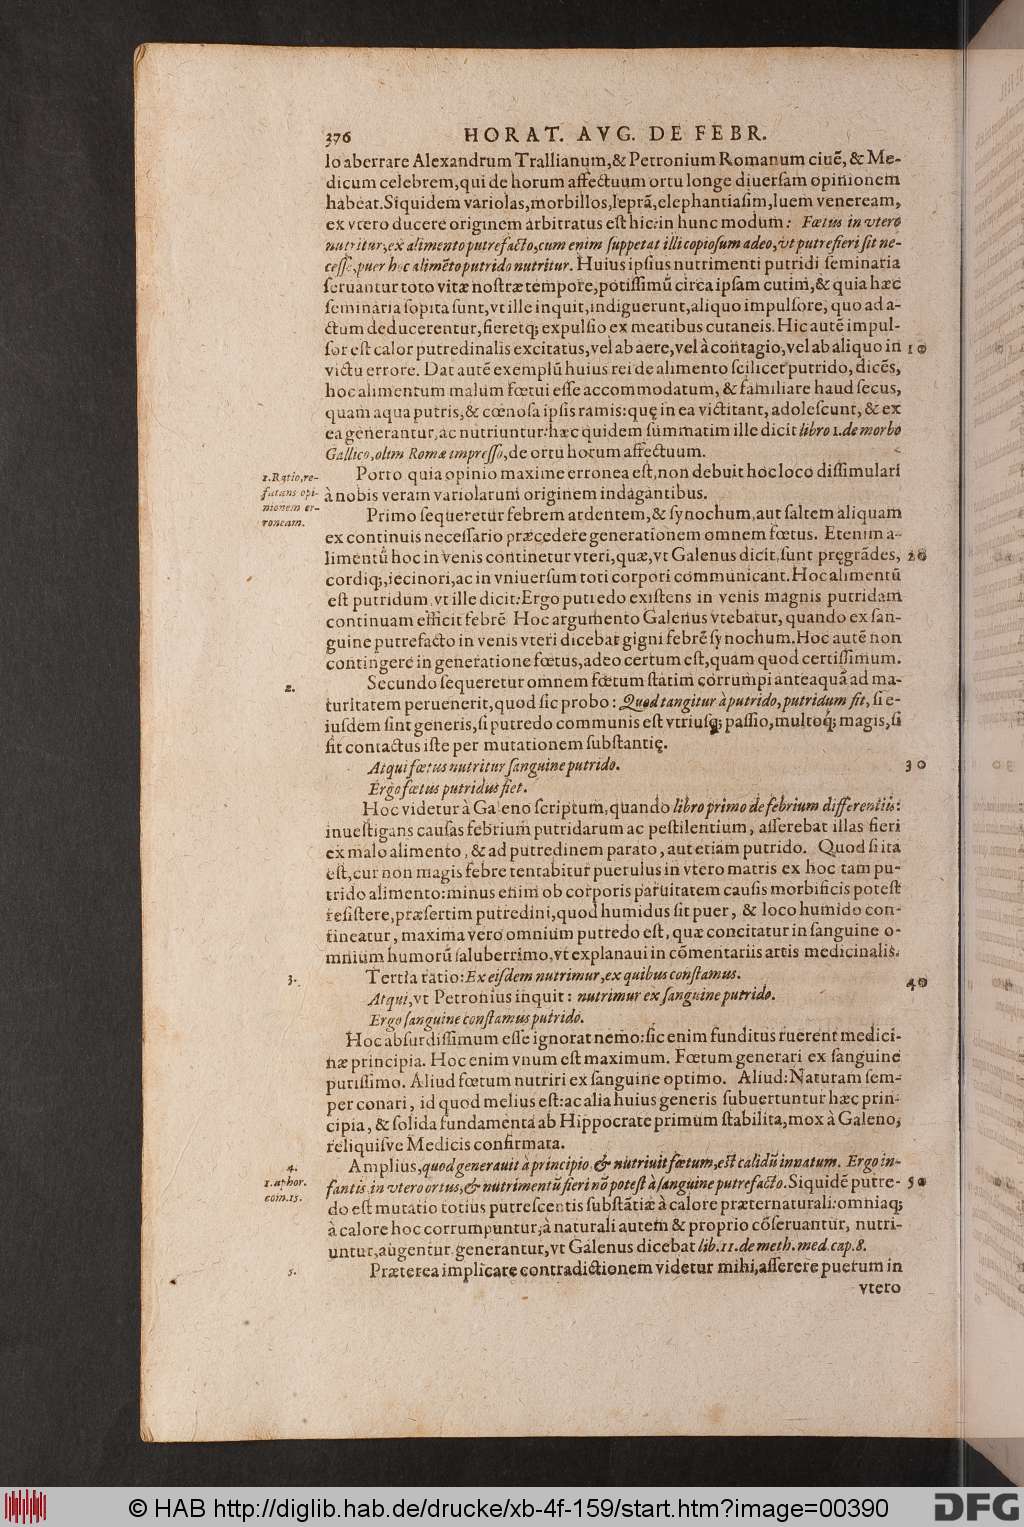 376 HORAT. AVG. DE FEBR.
lo aberrare Alexandrum Trallianum,& Petronium Romanum ciuẽ, & Me-
dicum celebrem,qui de horum affectuum ortu longe diuerſam opinionem
habeat.Siquidem variolas,morbillos,leprã,elephantiaſim,luem veneream,
ex vtero ducere originem arbitratus eſt hic:in hunc modum: Fœtus in vtero
nutritur,ex alimento putrefacto,cum enim ſuppetat illi copioſum adeo,vt putrefieri ſit ne-
ceſſe,puer hoc alimẽto putrido nutritur. Huius ipſius nutrimenti putridi ſeminaria
ſeruantur toto vitæ noſtræ tempore,potiſſimũ circa ipſam cutim,& quia hæc
ſeminaria ſopita ſunt,vt ille inquit,indiguerunt,aliquo impulſore, quo ad a-
ctum deducerentur,fieretq; expulſio ex meatibus cutaneis. Hic autẽ impul-
ſor eſt calor putredinalis excitatus,vel ab aere,vel à contagio,vel ab aliquo in 10
victu errore. Dat autẽ exemplũ huius rei de alimento ſcilicet putrido, dicẽs,
hoc alimentum malum fœtui eſſe accommodatum, & familiare haud ſecus,
quam aqua putris,& cœnoſa ipſis ramis:quę in ea victitant, adoleſcunt, & ex
ea generantur,ac nutriuntur:hæc quidem ſummatim ille dicit libro 1.de morbo
Gallico,olim Romæ impreſſo,de ortu horum affectuum.
1.Ratio,re-
futans opi-
nionem er-
roneam.
Porro quia opinio maxime erronea eſt,non debuit hoc loco diſſimulari
à nobis veram variolarum originem indagantibus.
Primo ſequeretur febrem ardentem,& ſynochum,aut ſaltem aliquam
ex continuis neceſſario præcedere generationem omnem fœtus. Etenim a-
limentũ hoc in venis continetur vteri,quæ,vt Galenus dicit,ſunt pręgrãdes, 20
cordiq;,iecinori,ac in vniuerſum toti corpori communicant.Hoc alimentũ
eſt putridum,vt ille dicit:Ergo putredo exiſtens in venis magnis putridam
continuam efficit febrẽ Hoc argumento Galenus vtebatur, quando ex ſan-
guine putrefacto in venis vteri dicebat gigni febrẽ ſynochum.Hoc autẽ non
contingere in generatione fœtus,adeo certum eſt,quam quod certiſſimum.
2.
Secundo ſequeretur omnem fœtum ſtatim corrumpi anteaquã ad ma-
turitatem peruenerit,quod ſic probo: Quod tangitur à putrido, putridum fit, ſi e-
iuſdem ſint generis,ſi putredo communis eſt vtriuſq; paſſio,multoq́; magis,ſi
ſit contactus iſte per mutationem ſubſtantię.
Atqui fœtus nutritur ſanguine putrido. 30
Ergo fœtus putridus fiet.
Hoc videtur à Galeno ſcriptum,quando libro primo de febrium differentiis:
inueſtigans cauſas febrium putridarum ac peſtilentium, aſſerebat illas fieri
ex malo alimento, & ad putredinem parato, aut etiam putrido. Quod ſi ita
eſt,cur non magis febre tentabitur puerulus in vtero matris ex hoc tam pu-
trido alimento:minus enim ob corporis paruitatem cauſis morbificis poteſt
reſiſtere,præſertim putredini,quod humidus ſit puer, & loco humido con-
tineatur, maxima vero omnium putredo eſt, quæ concitatur in ſanguine o-
mnium humorũ ſaluberrimo,vt explanaui in cõmentariis artis medicinalis.
3.
Tertia ratio: Ex eiſdem nutrimur,ex quibus conſtamus. 40
Atqui,vt Petronius inquit: nutrimur ex ſanguine putrido.
Ergo ſanguine conſtamus putrido.
Hoc abſurdiſſimum eſſe ignorat nemo:ſic enim funditus ruerent medici-
næ principia. Hoc enim vnum eſt maximum. Fœtum generari ex ſanguine
puriſſimo. Aliud fœtum nutriri ex ſanguine optimo. Aliud:Naturam ſem-
per conari, id quod melius eſt:ac alia huius generis ſubuertuntur hæc prin-
cipia, & ſolida fundamenta ab Hippocrate primum ſtabilita,mox à Galeno,
reliquiſve Medicis confirmata.
4.
1.aphor.
com.15.
Amplius,quod generauit à principio,& nutriuit fœtum,eſt calidũ innatum. Ergo in-
fantis in vtero ortus,& nutrimentũ fieri nõ poteſt à ſanguine putrefacto. Siquidẽ putre- 50
do eſt mutatio totius putreſcentis ſubſtãtiæ à calore præternaturali:omniaq;
à calore hoc corrumpuntur,à naturali autem & proprio cõſeruantur, nutri-
untur,augentur generantur,vt Galenus dicebat lib.11.de meth.med.cap.8.
5.
Præterea implicare contradictionem videtur mihi,aſſerere puerum in
vtero
© HAB http://diglib.hab.de/drucke/xb-4f-159/start.htm?image=00390
DFG